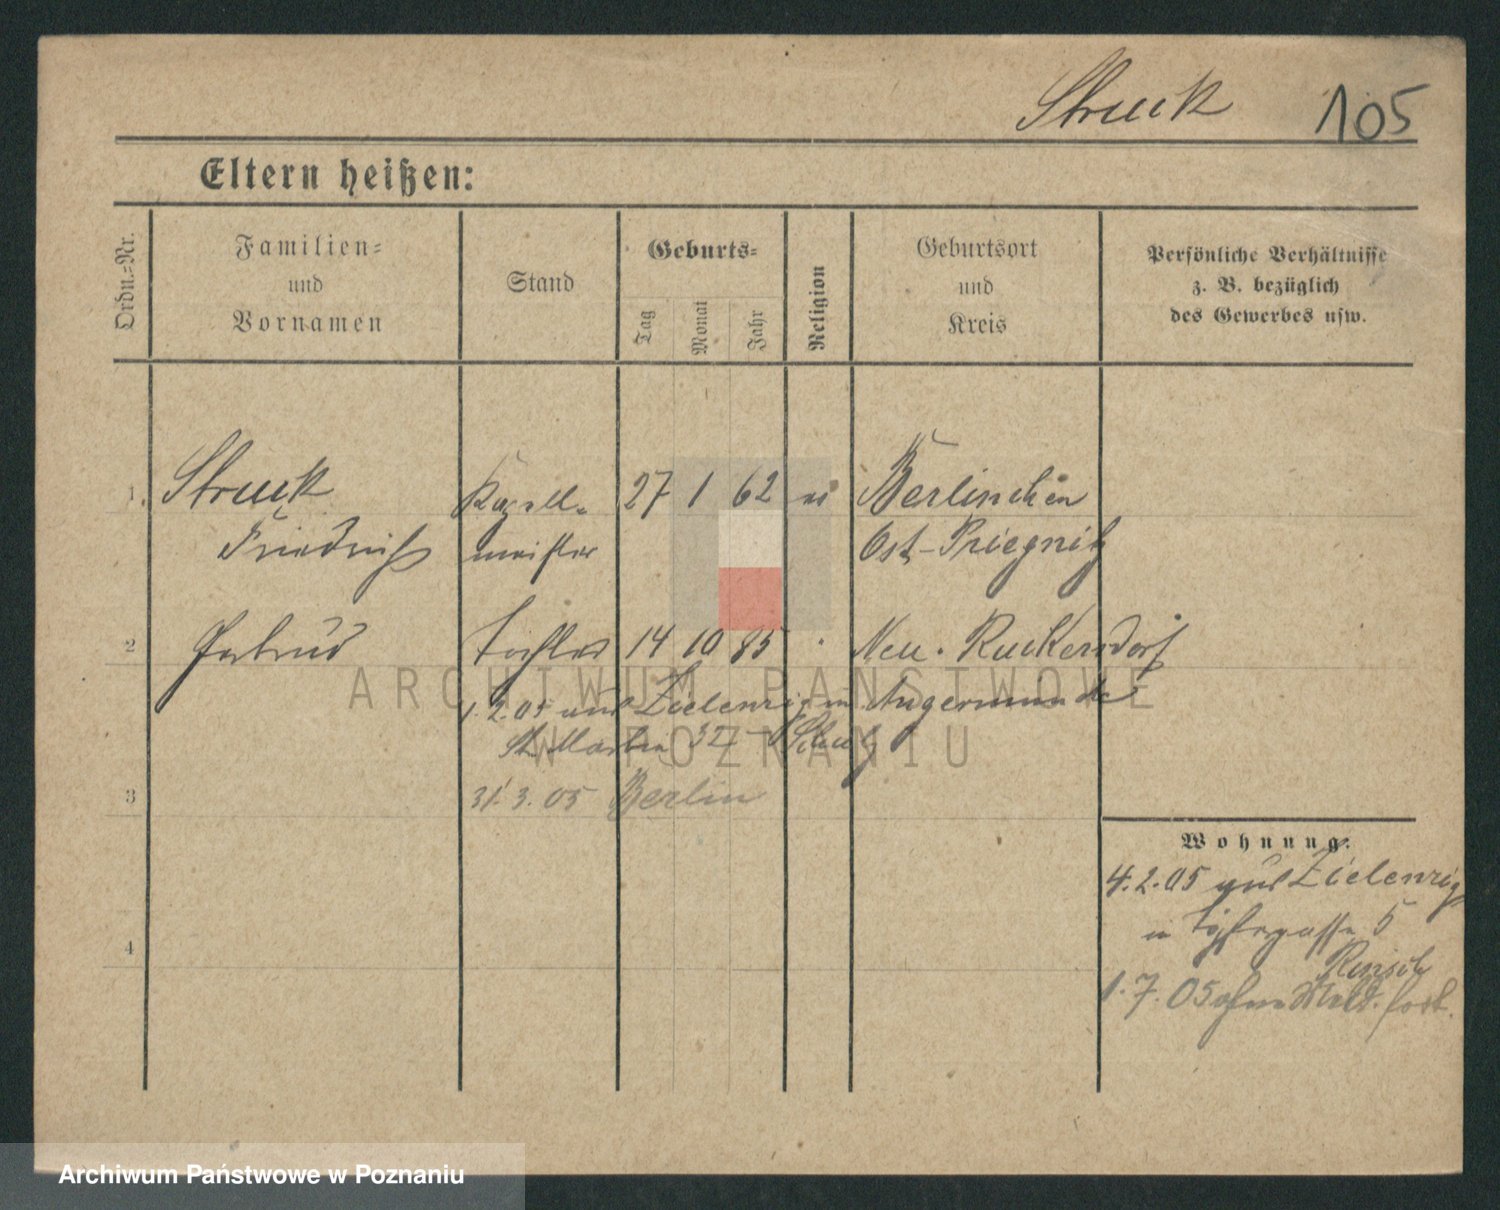 Struck 105
Eltern heißen:
Ordn.=Nr.
Familien=
und
Vornamen
Stand
Geburts=
Tag
Monat
Jahr
Religion
Geburtsort
und
Kreis
Persönliche Verhältnisse
z. B. bezüglich
des Gewerbes usw.
1. Struck Kapell- 27 1 62 Berlinchen
Friedrich meister Ost-Priegnitz
2 Gertrud Tochter 14 10 85 Neu-Ruckersdorf
1.2.05 aus Zielenzig in Angermünde
St. Martin 32
3 31.3.05 Berlin
Wohnung:
4.2.05 aus Zielenzig
in 5
4
1.7.05 ohne Meld. fort.
ARCHIWUM PAŃSTWOWE
W POZNANIU
Archiwum Państwowe w Poznaniu